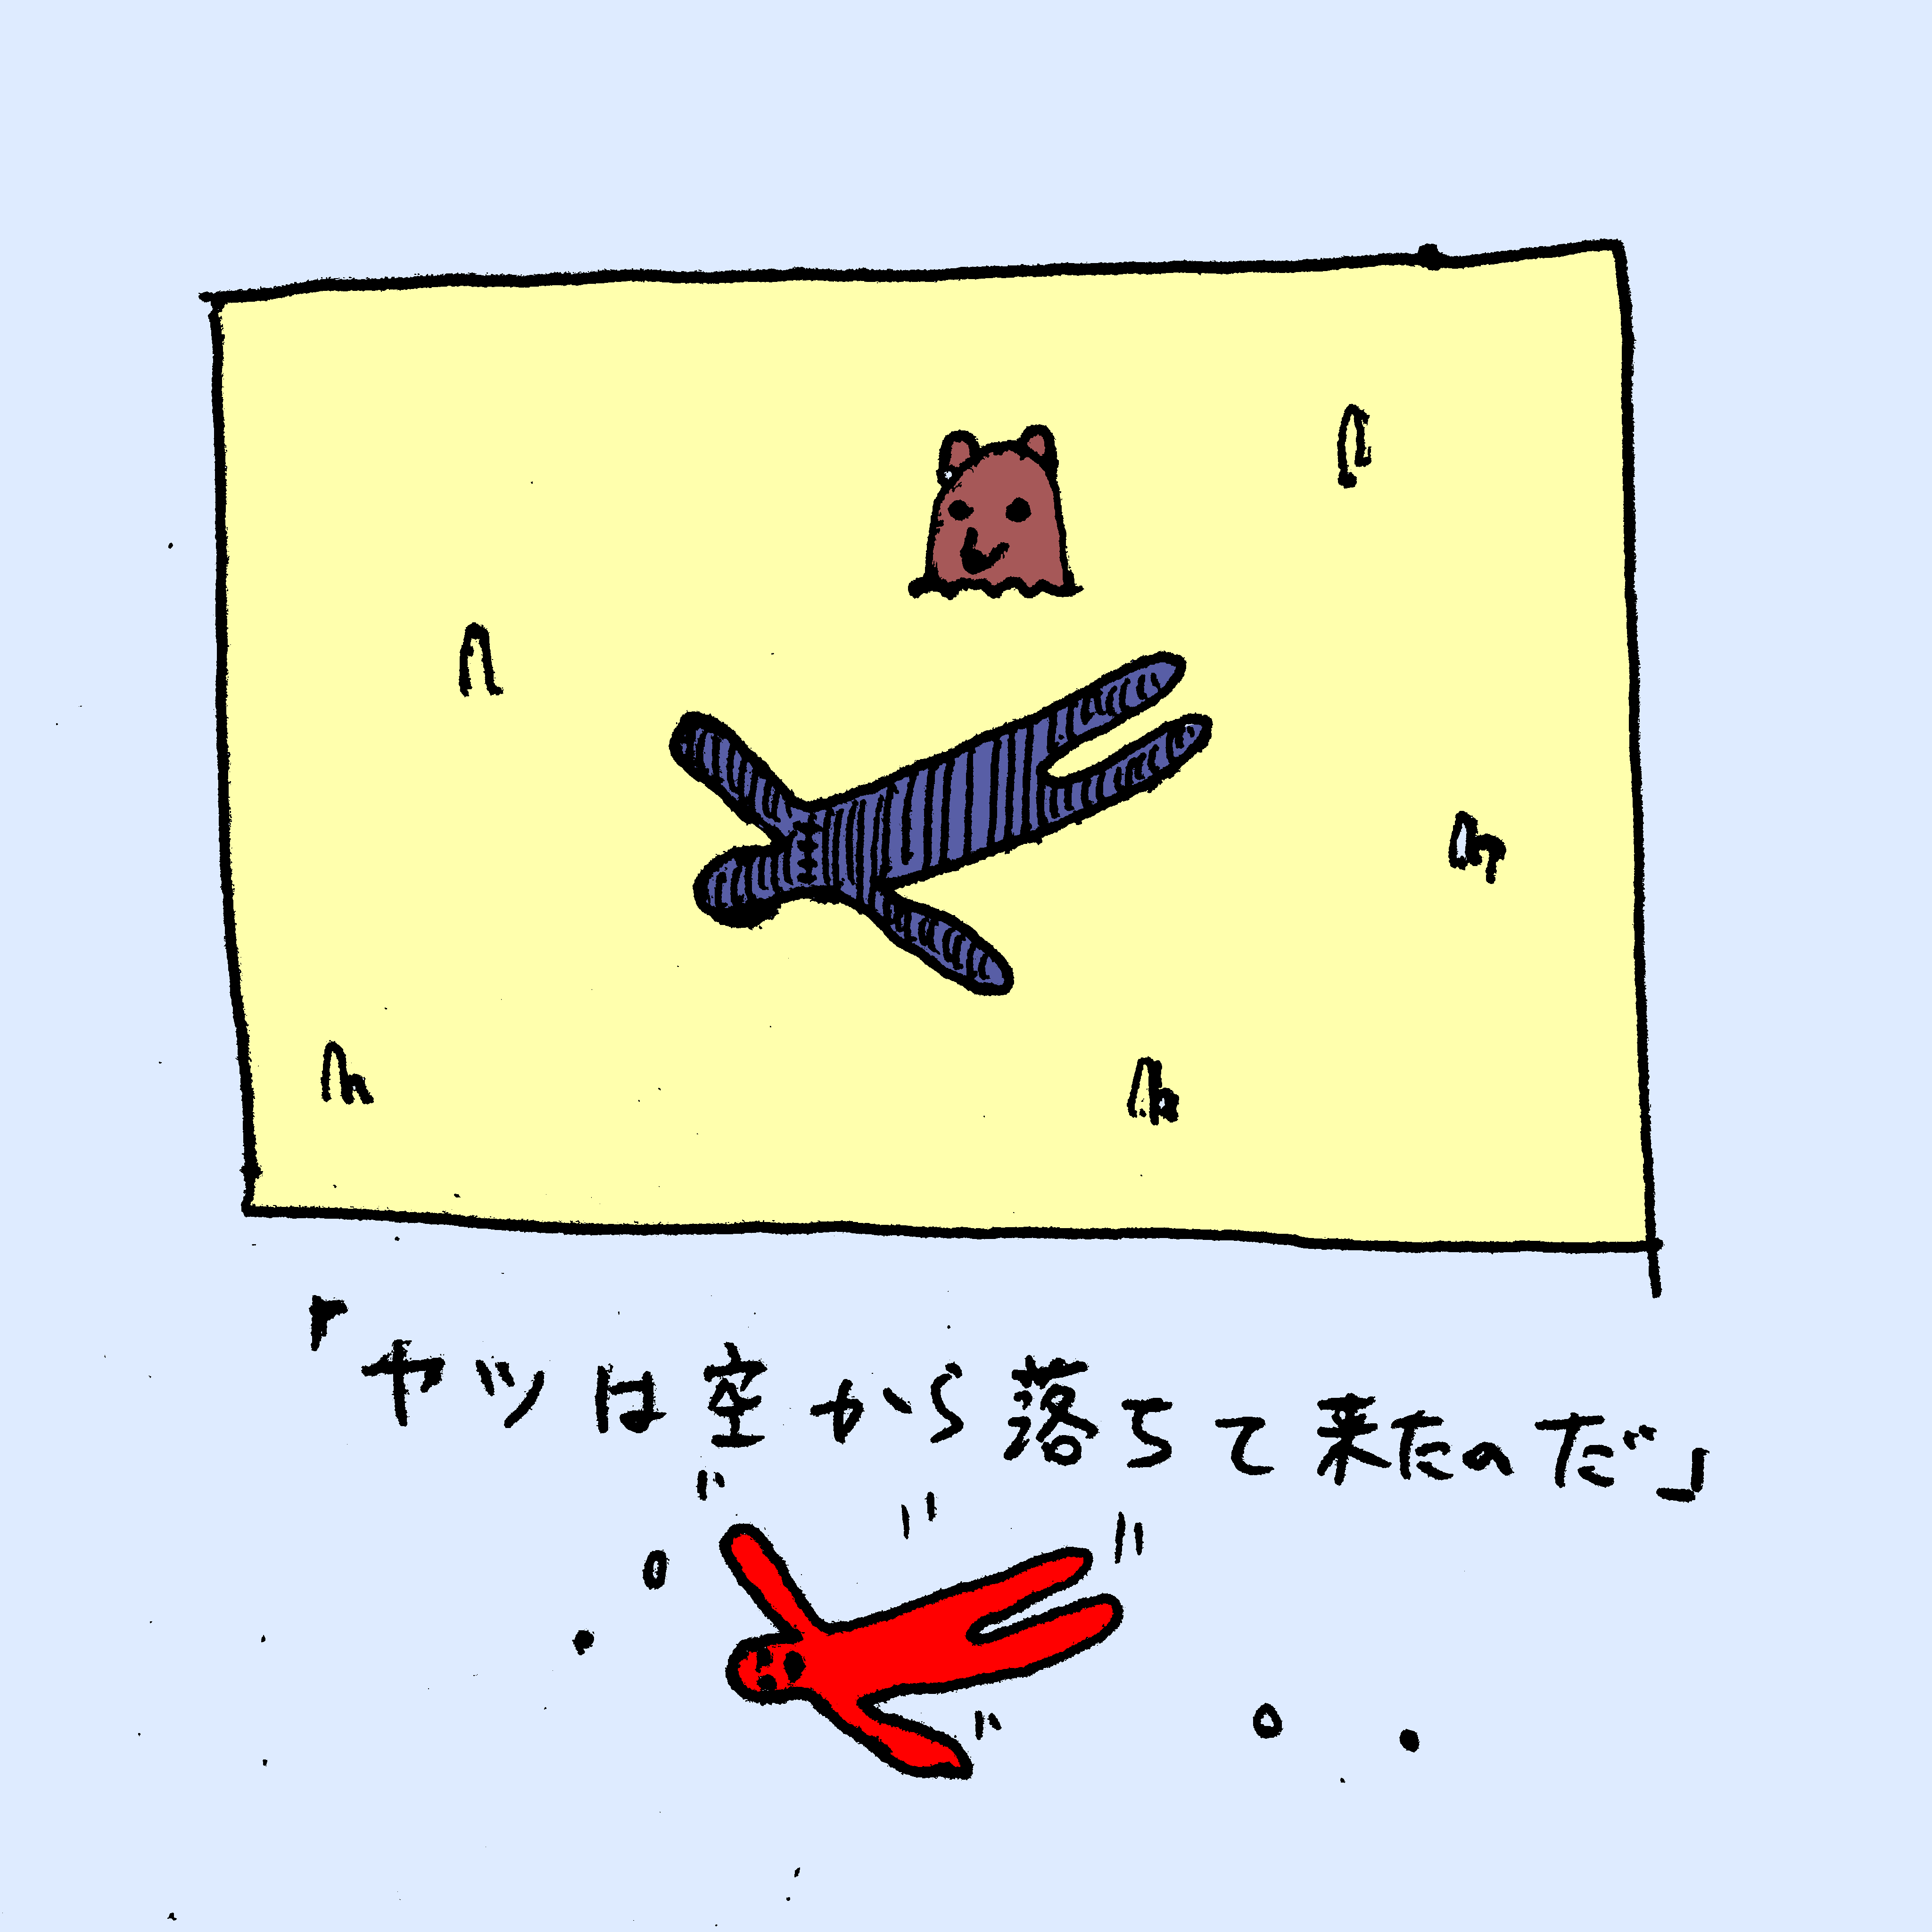 「ヤツは空から落ちて来たのだ」